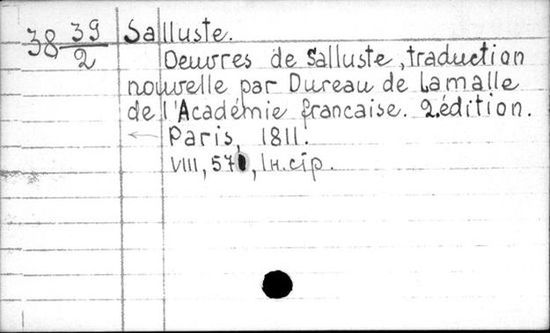 38 39/2 Salluste.
Oeuvres de Salluste, traduction
nouvelle par Dureau de Lamalle
de l'Académie francaise. 2.édition.
Paris, 1811.
VIII, 570, 1 н.стр.